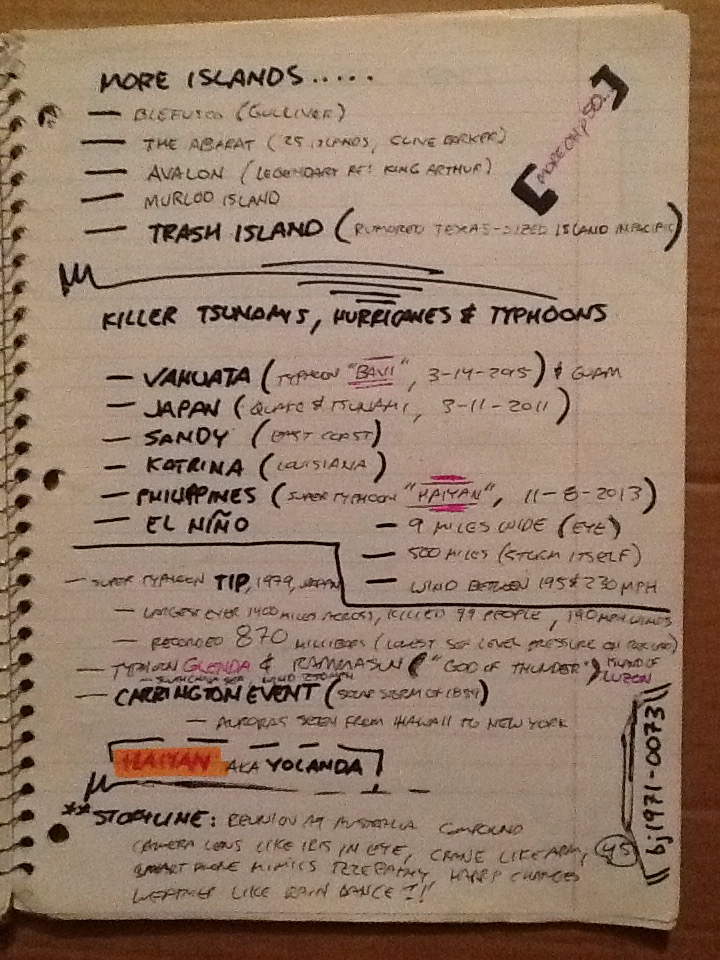 MORE ISLANDS.....
— BLEFUSCU (GULLIVER)
— THE ABARAT (25 ISLANDS, CLIVE BARKER)
— AVALON (LEGENDARY REF: KING ARTHUR)
— MURLOD ISLAND
— TRASH ISLAND (RUMORED TEXAS-SIZED ISLAND IN PACIFIC)
[MORE ON p 50...]
KILLER TSUNAMIS, HURRICANES & TYPHOONS
— VAHUATA (TYPHOON "BAVI", 3-14-2015) & GUAM
— JAPAN (QUAKE & TSUNAMI, 3-11-2011)
— SANDY (EAST COAST)
— KATRINA (LOUISIANA)
— PHILIPPINES (SUPER TYPHOON "HAIYAN", 11-8-2013)
— EL NIÑO
— 9 MILES WIDE (EYE)
— 500 MILES (STORM ITSELF)
— WIND BETWEEN 195 & 230 MPH
— SUPER TYPHOON TIP, 1979, JAPAN
— LARGEST EVER 1400 MILES ACROSS, KILLED 99 PEOPLE, 190 MPH WINDS
— RECORDED 870 MILLIBARS (LOWEST SEA LEVEL PRESSURE ON RECORD)
— TYPHOON GLENDA & RAMMASUN ("GOD OF THUNDER") ISLAND OF LUZON
— SOUTH CHINA SEA, WIND
— CARRINGTON EVENT (SOLAR STORM OF 1859)
— AURORAS SEEN FROM HAWAII TO NEW YORK
HAIYAN AKA YOLANDA
** STORYLINE: REUNION AT AUSTRALIA COMPOUND
CAMERA LENS LIKE IRIS IN EYE, CRANE LIKE ARM,
SMART PHONE MIMICS TELEPATHY, HAARP CHANGES
WEATHER LIKE RAIN DANCE!!
45
bj1971-0073